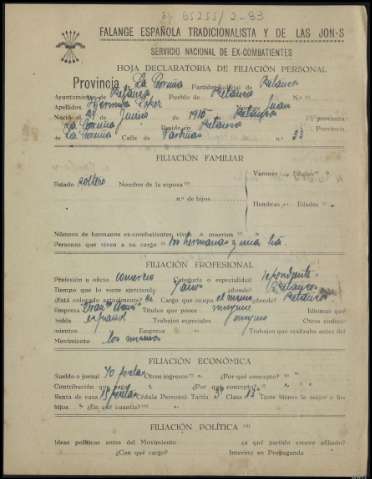 65255/2-83
FALANGE ESPAÑOLA TRADICIONALISTA Y DE LAS JON-S
SERVICIO NACIONAL DE EX-COMBATIENTES
HOJA DECLARATORIA DE FILIACIÓN PERSONAL
Provincia La Coruña Partido Judicial de Betanzos
Ayuntamiento de Betanzos Pueblo de Betanzos N.º
Apellidos Juan
Nació el 24 Junio de 1910 Betanzos provincia
La Coruña Reside en Betanzos provincia
de La Coruña Calle de n.º 23
FILIACIÓN FAMILIAR
Estado soltero Nombre de la esposa Varones Edades
n.º de hijos
Hembras Edades
Número de hermanos ex-combatientes vivos o muertos
Personas que viven a su cargo dos hermanas y una tía
FILIACIÓN PROFESIONAL
Profesión u oficio comercio Categoría o especialidad dependiente
Tiempo que lo viene ejerciendo años ¿dónde? Betanzos
¿Está colocado actualmente? Cargo que ocupa el mismo ¿dónde? Betanzos
Empresa Títulos que posee ninguno Idiomas que
habla español Trabajos especiales ninguno Otros conoci-
mientos Empresa Trabajos que realizaba antes del
Movimiento los mismos
FILIACIÓN ECONÓMICA
Sueldo o jornal 40 pesetas Otros ingresos ¿Por qué concepto?
Contribución que paga ¿Por qué concepto?
Renta de casa 15 pesetas Cédula Personal Tarifa 3ª Clase 13ª Tiene bienes la mujer o los
hijos ¿En qué cuantía?
FILIACIÓN POLÍTICA
Ideas políticas antes del Movimiento ¿a qué partido estuvo afiliado?
¿Con qué cargo? Intervino en Propaganda